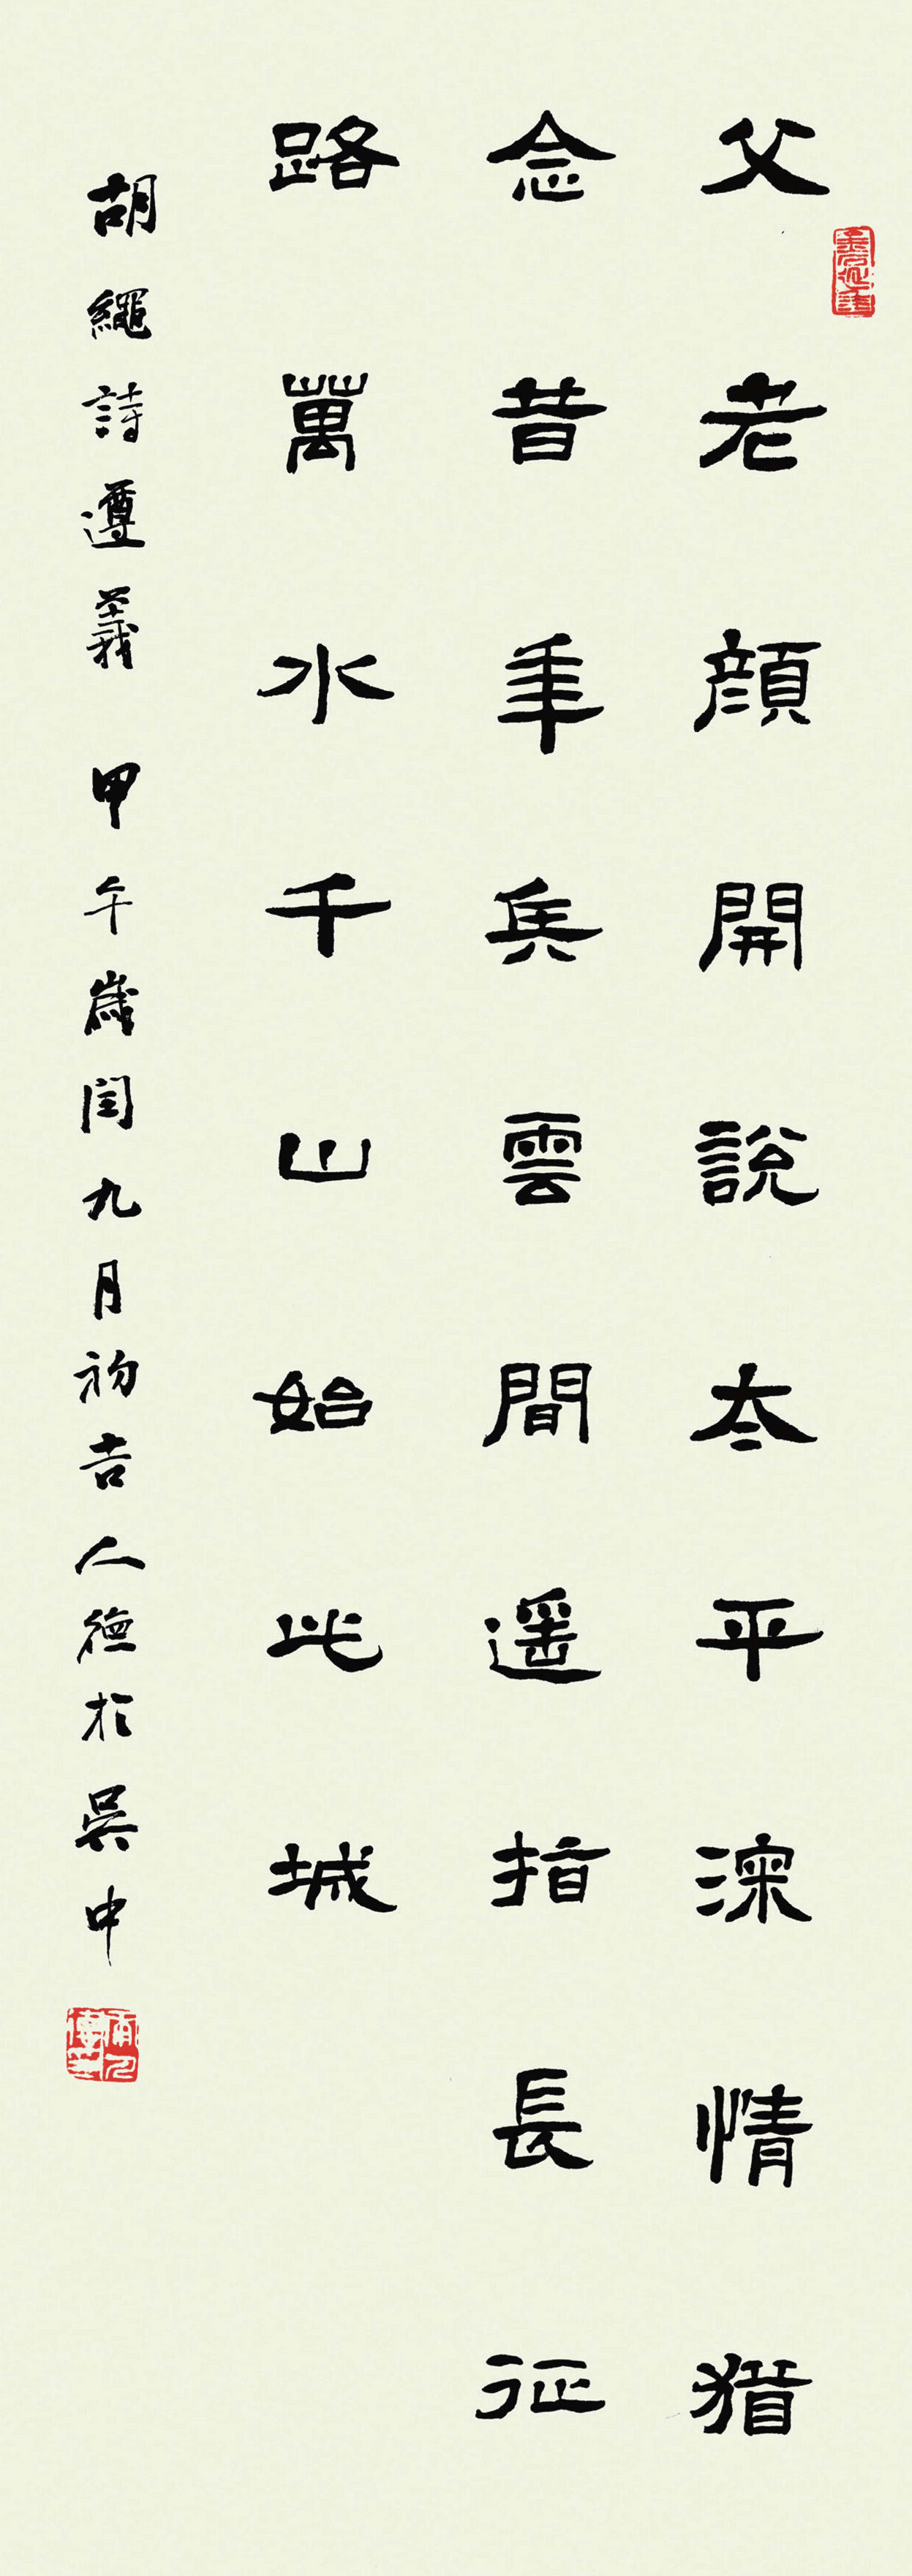 父老顔開說太平深情猶
念昔年兵雲間遥指長征
路萬水千山始此城
胡繩詩遵義 甲午歲閏九月初吉人德於吳中